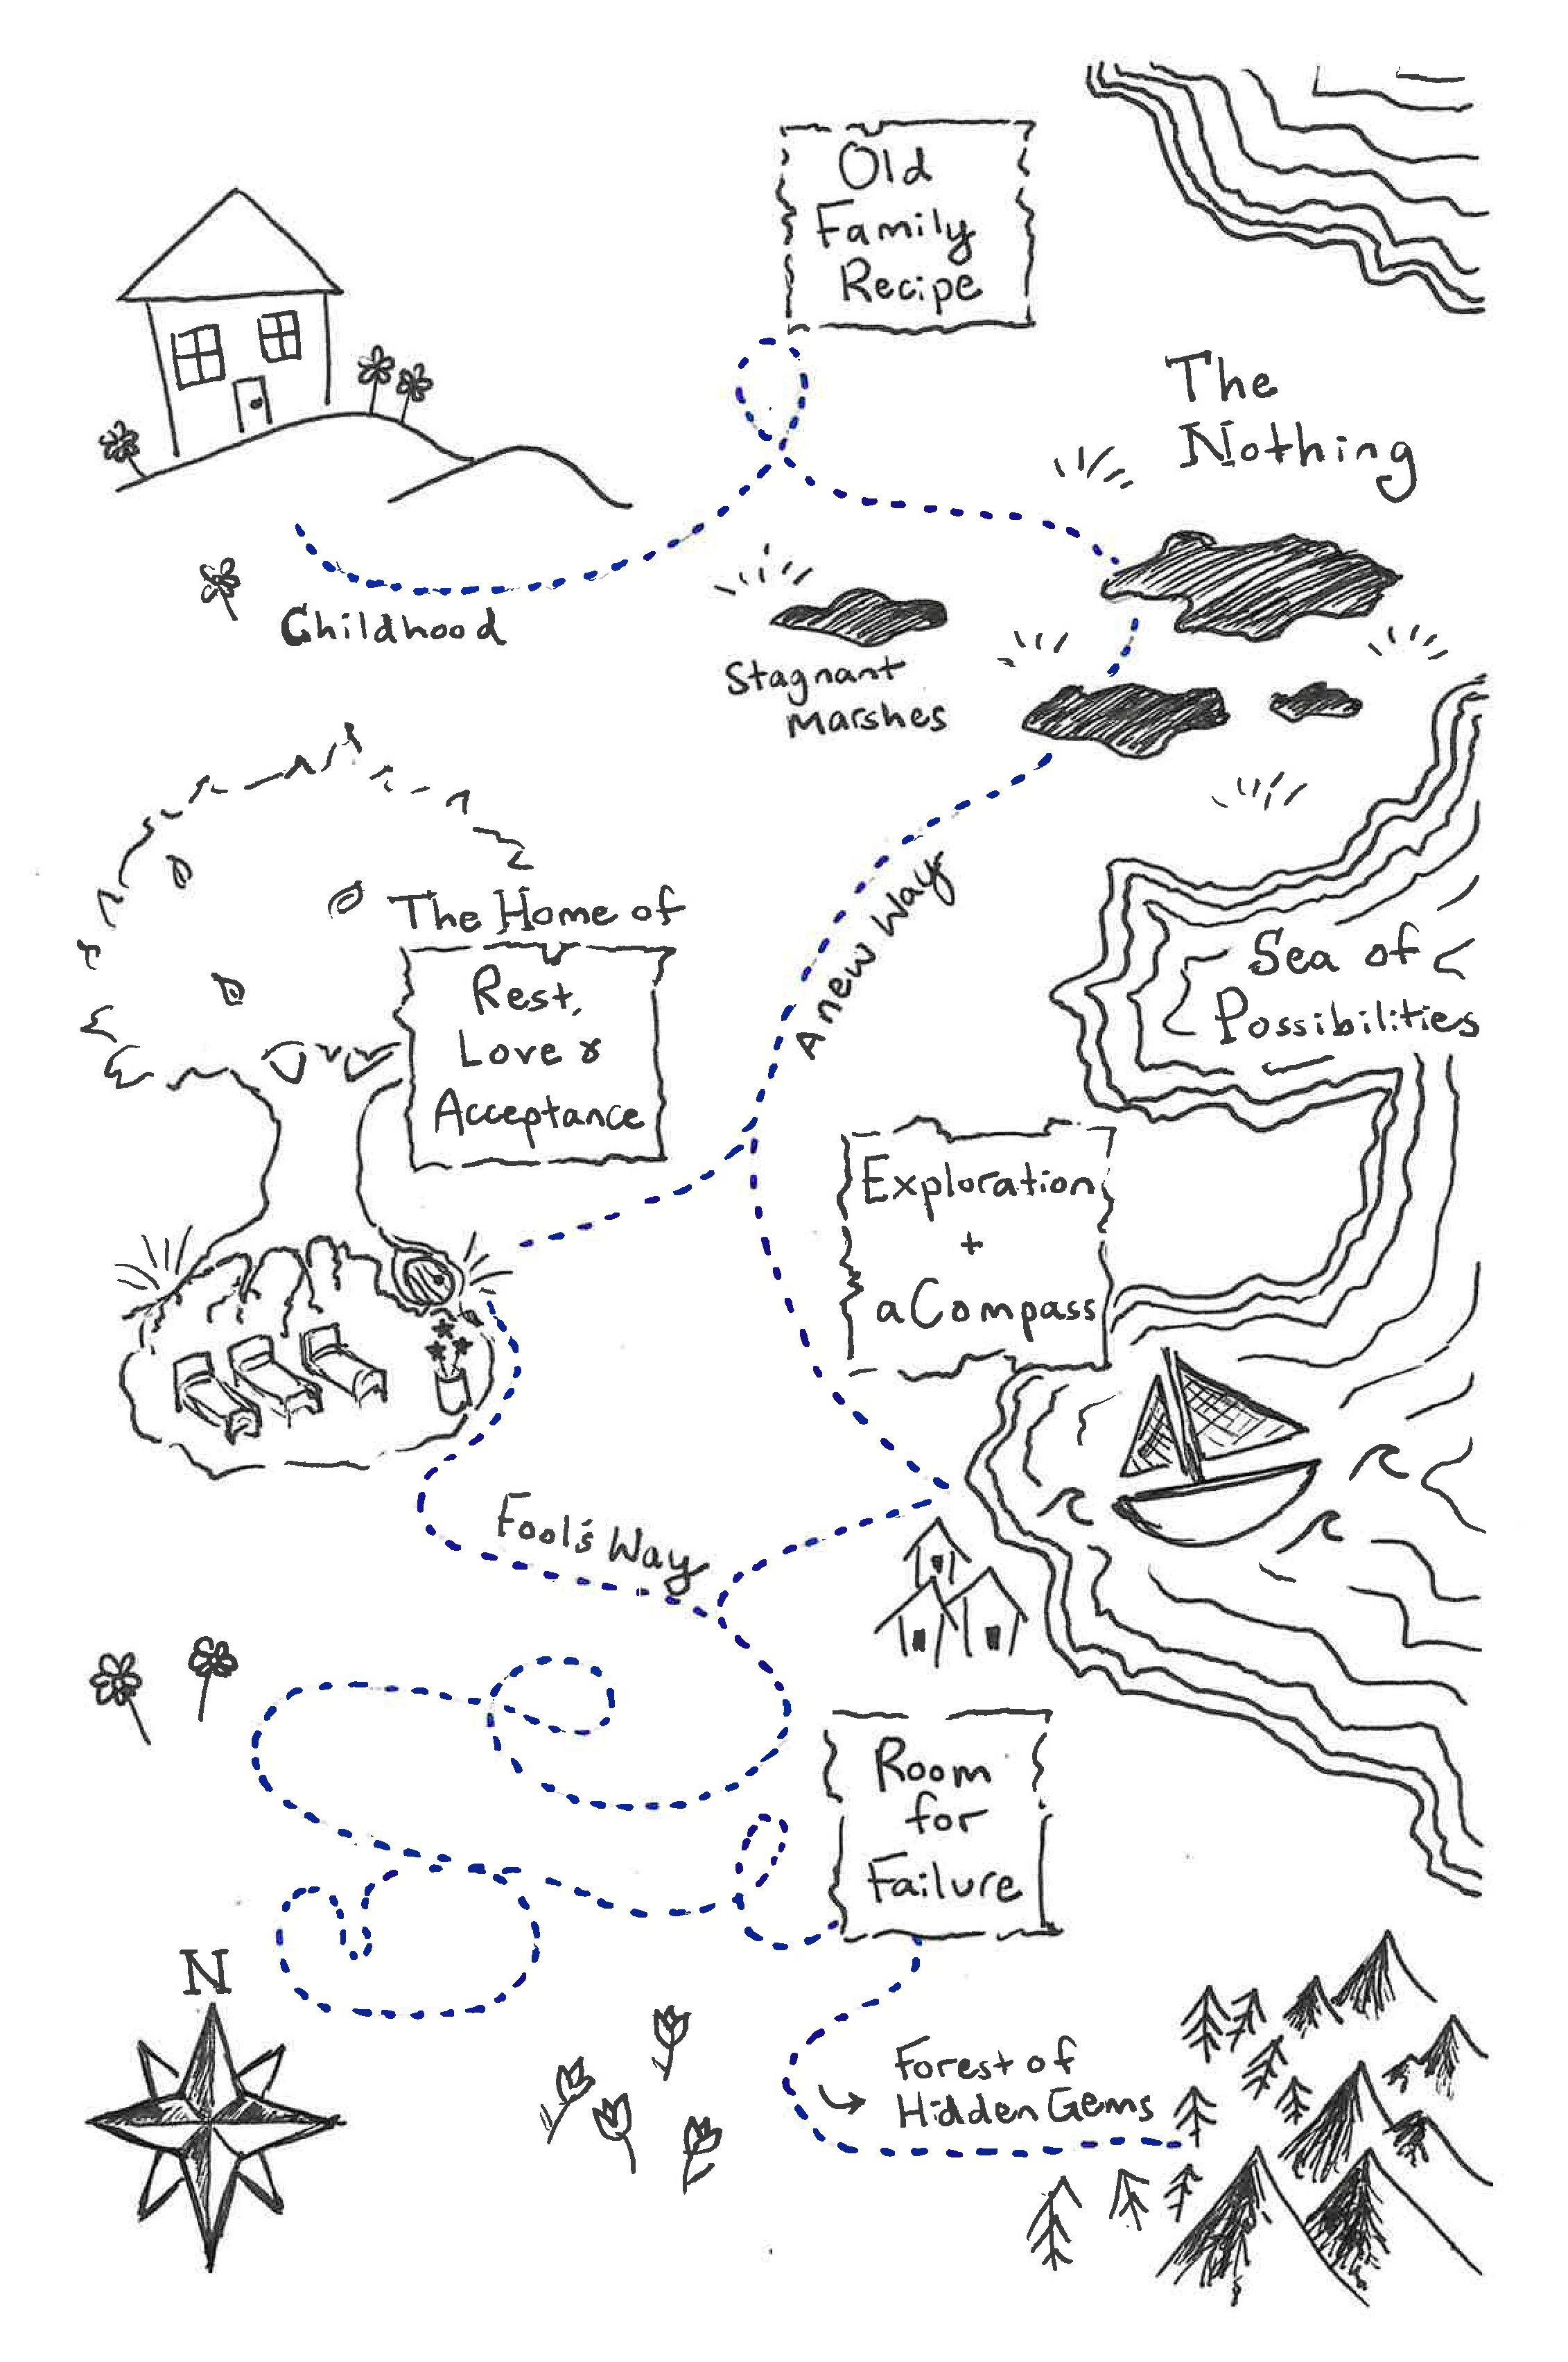 Old
Family
Recipe
The
Nothing
Childhood
Stagnant
marshes
A new Way
The Home of
Rest,
Love &
Acceptance
Sea of
Possibilities
Exploration
+
a Compass
Fool's Way
Room
for
Failure
N
Forest of
Hidden Gems